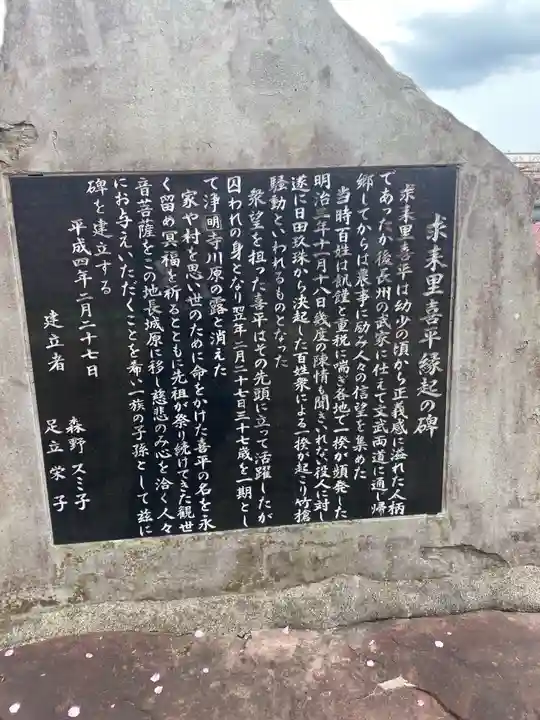 求来里喜平縁起の碑
求来里喜平は幼少の頃から正義感に溢れた人柄
であったが後長州の武家に仕えて文武両道に通じ帰
郷してからは農事に励み人々の信望を集めた
当時百姓は飢饉と重税に喘ぎ各地で一揆が頻発した
明治三年十一月十八日幾度の陳情も聞き入れない役人に対し
遂に日田玖珠から決起した百姓衆による一揆が起こり竹槍
騒動といわれるものとなった
衆望を担った喜平はその先頭に立って活躍したが
囚われの身となり翌年二月二十七日三十七歳を一期とし
て浄明寺川原の露と消えた
家や村を思い世のために命をかけた喜平の名を永
く留め冥福を祈るとともに先祖が祭り続けてきた観世
音菩薩をこの地長城原に移し慈悲のみ心を洽く人々
にお与えいただくことを希い一族の子孫として茲に
碑を建立する
平成四年二月二十七日
建立者 森野スミ子
足立栄子